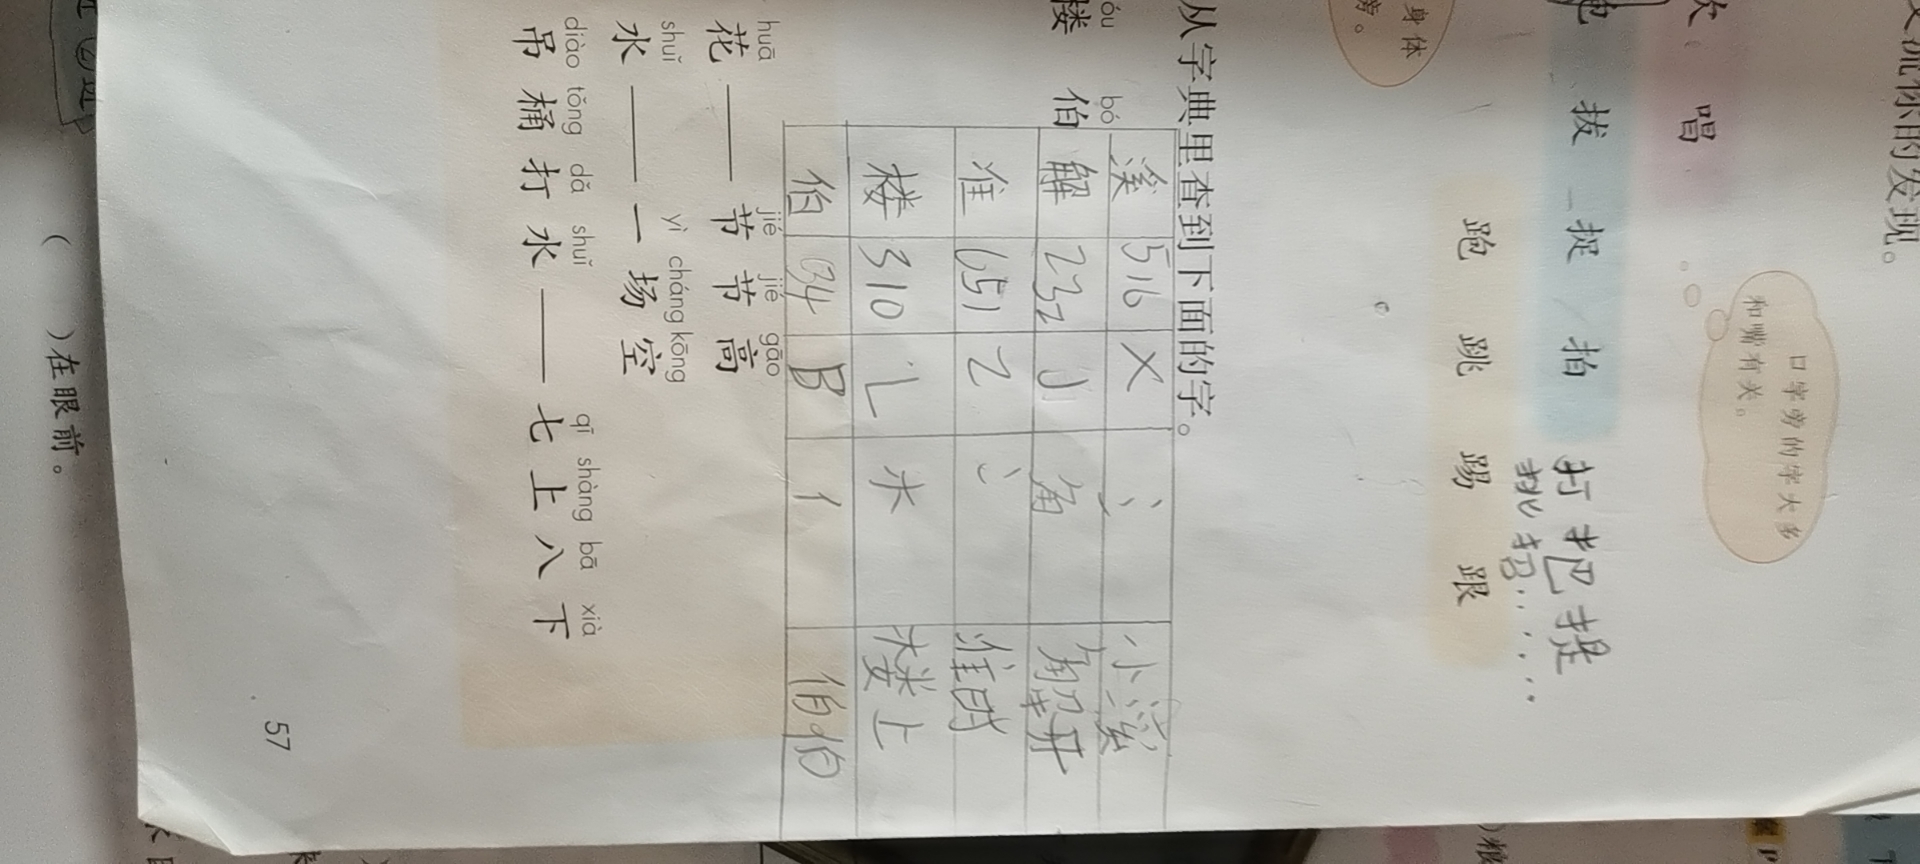 次 唱
口字旁的字大多
和嘴有关。
拔 捉 拍 打 把 提
挑 招……
跑 跳 踢 跟
身体
旁。
从字典里查到下面的字。
bó
楼 伯
溪 516 X 氵 小溪
解 232 J 角 解开
准 651 Z 冫 准时
楼 310 L 木 楼上
伯 34 B 亻 伯伯
huā jié jié gāo
花——节节高
shuǐ yì cháng kōng
水——一场空
diào tǒng dǎ shuǐ qī shàng bā xià
吊桶打水——七上八下
57
( )在眼前。